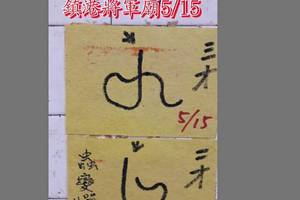 鎮港將軍廟5/15
三才
5/15
三才
蟲變